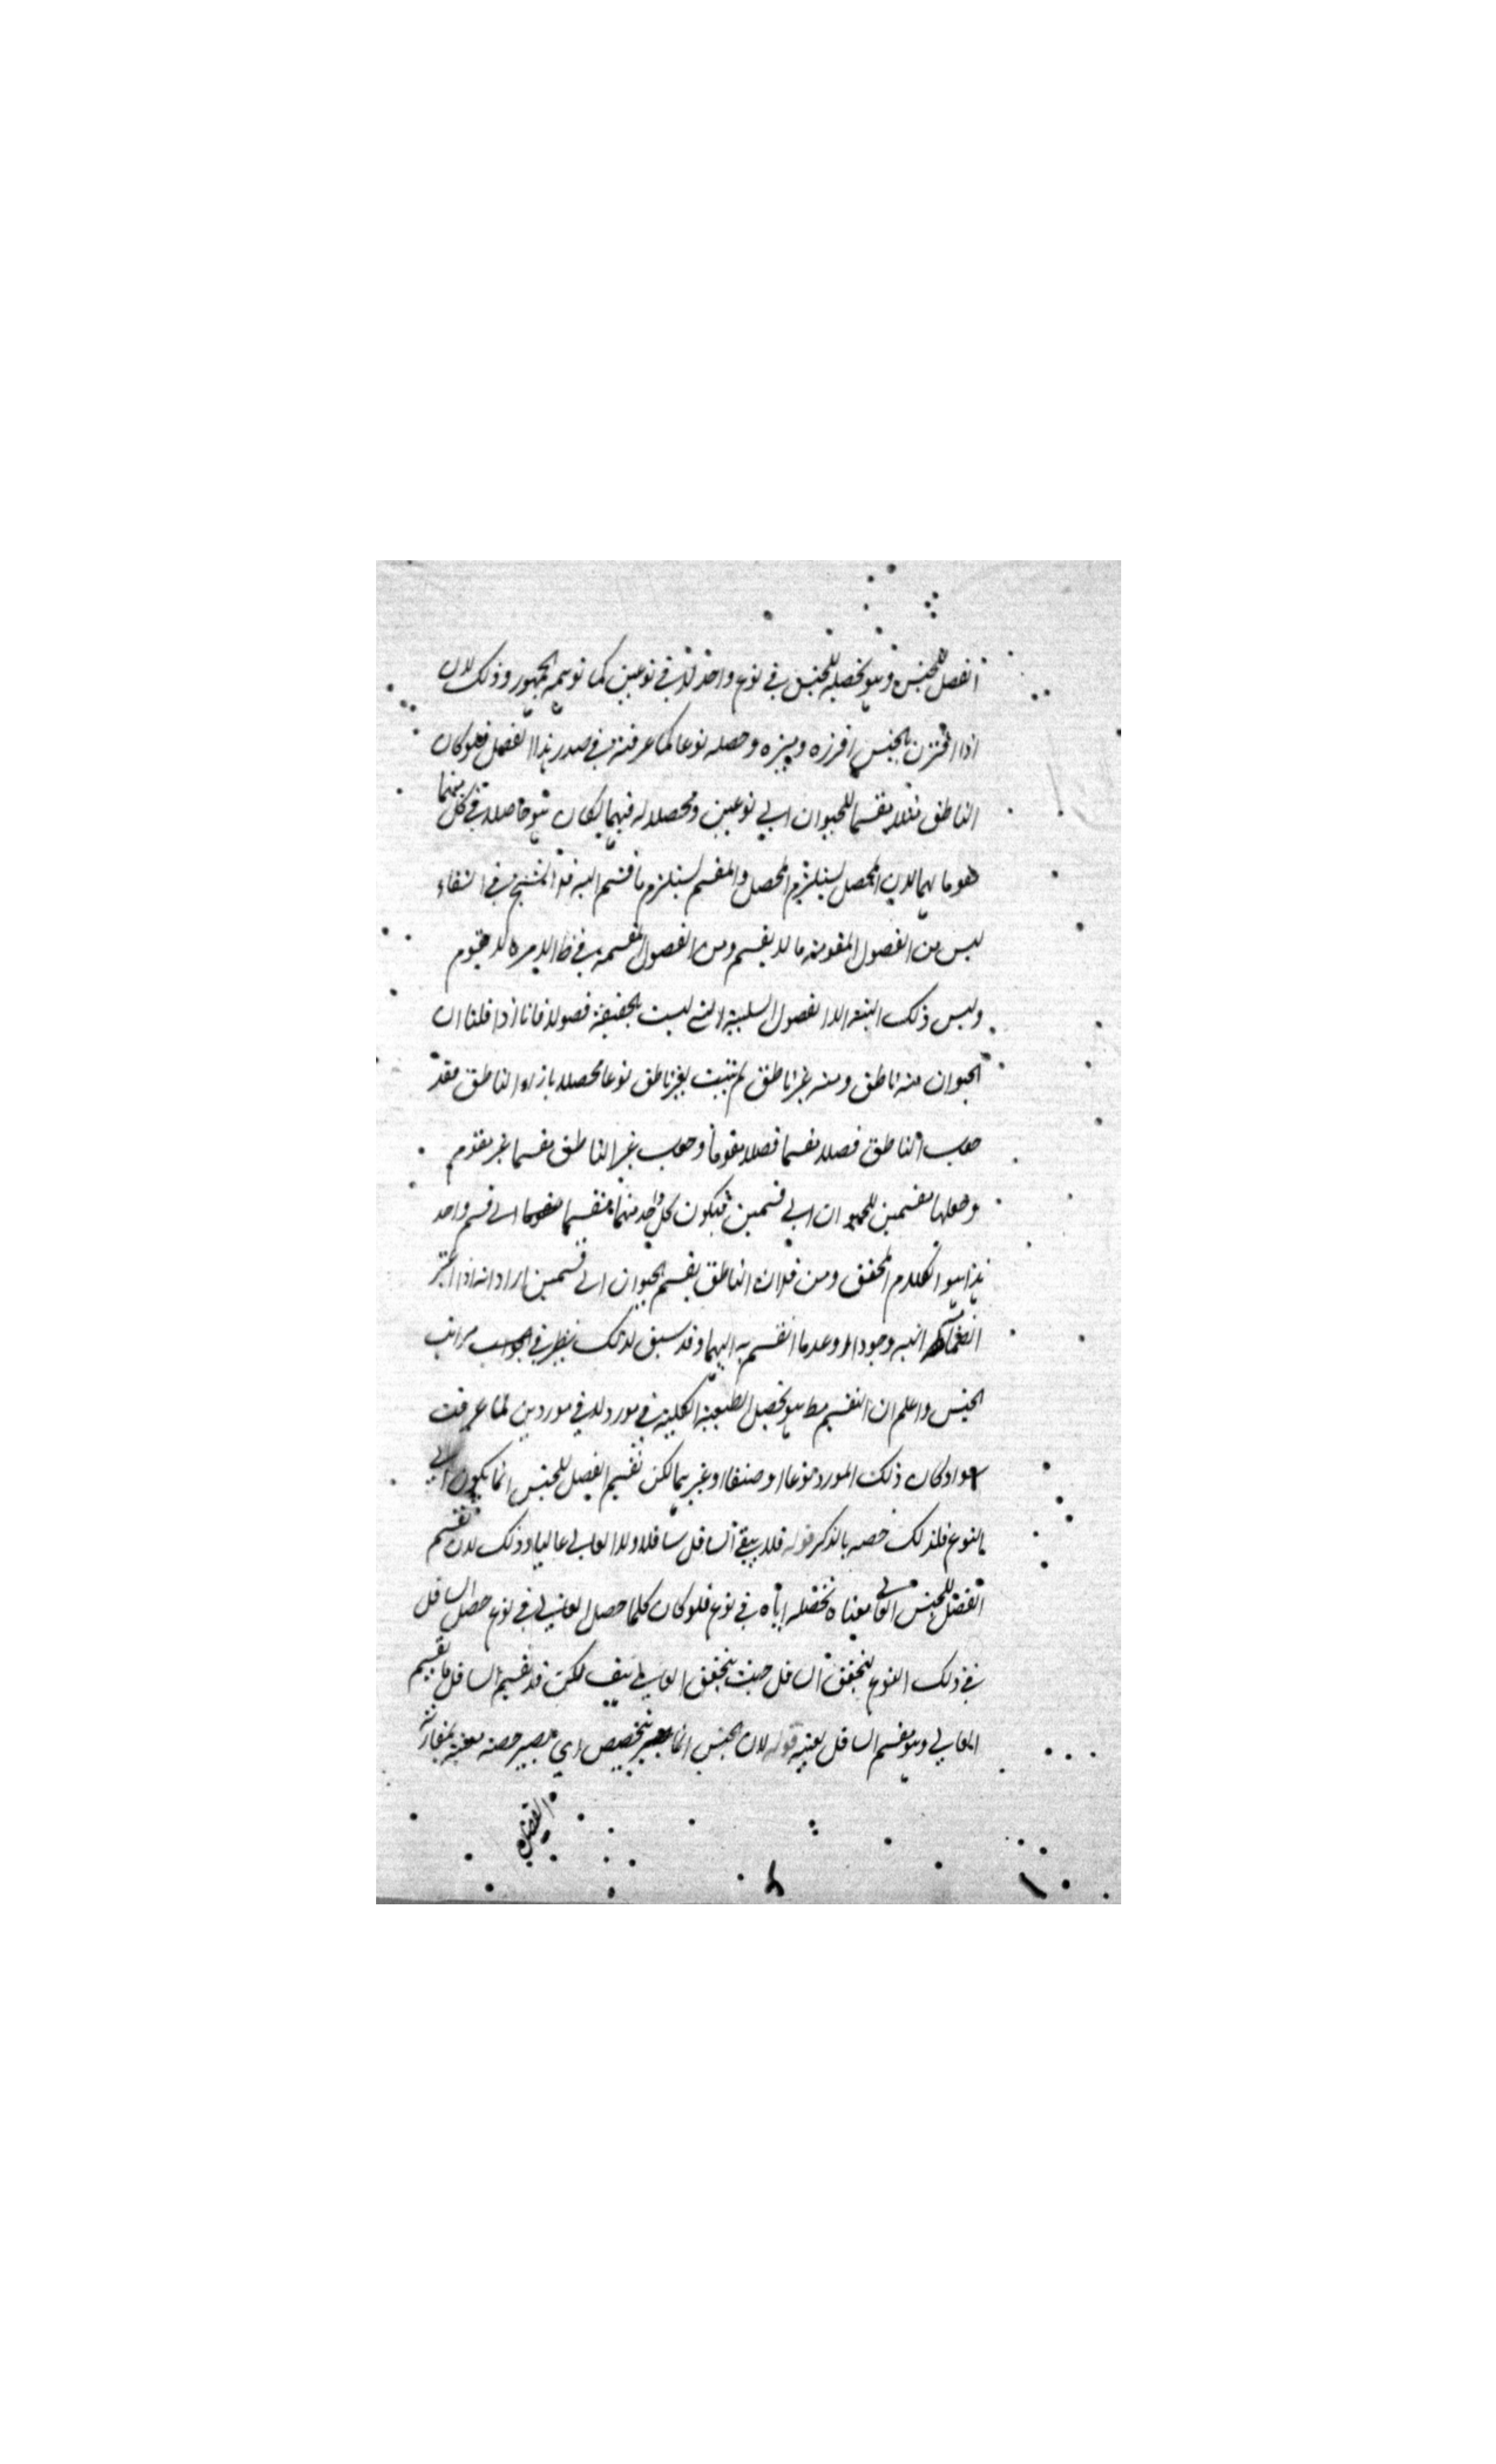 الفصل للجنس وهو تحصيله للجنس في نوع واحد لا في نوعين كما توهمه الجمهور وذلك لان
اذا اقترن بالجنس افرزه وميزه وحصله نوعا كما عرفته في صدر هذا الفصل فلو كان
الناطق مثلا مقسما للحيوان الي نوعين ومحصلا له فيهما لكان هو حاصلا في كل منهما
مقوما لهما لان المحصل يستلزم المحصل والمقسم يستلزم ما قسم اليه قال الشيخ في الشفاء
ليس من الفصول المقومة ما لا يقسم ومن الفصول المقسمة في ظاهر الامر ما لا يقوم
وليس ذلك البتة الا الفصول السلبية التي ليست بالحقيقة فصولا فانا اذا قلنا ان
الحيوان منه ناطق ومنه غير ناطق لم يثبت بغير ناطق نوعا محصلا بازاء الناطق فقد
جعل الناطق فصلا مقسما فصلا مقوما وجعل غير الناطق مقسما غير مقوم
وجعلهما مقسمين للحيوان الي قسمين فيكون كل واحد منهما مقسما الي قسم واحد
هذا هو الكلام المحقق ومن قال ان الناطق يقسم الحيوان الي قسمين اراد انه اذا اعتبر
اليه وجودا وعدما انقسم به اليهما وقد سبق لذلك نظير في مراتب
الجنس واعلم ان التقسيم مط هو تحصيل الطبيعة الكلية في مورد لا في موردين لما عرفت
سواء كان ذلك المورد نوعا او صنفا او غيرهما لكن تقسيم الفصل للجنس انما يكون الي
النوع فلذلك خصه بالذكر قوله فلا يبقي السافل سافلا ولا العالي عاليا وذلك لان تقسيم
الفصل للجنس العالي معناه تحصله اياه في نوع فلو كان كلما حصل العالي في نوع حصل السافل
في ذلك النوع لتحقق السافل حيث يتحقق العالي هف لكن قد يقسم السافل ما يقسم
العالي وهو مقسم السافل بعينه قوله لان الجنس انما يتخصص اي يصير حصة معينة بمقارنة
الفصل